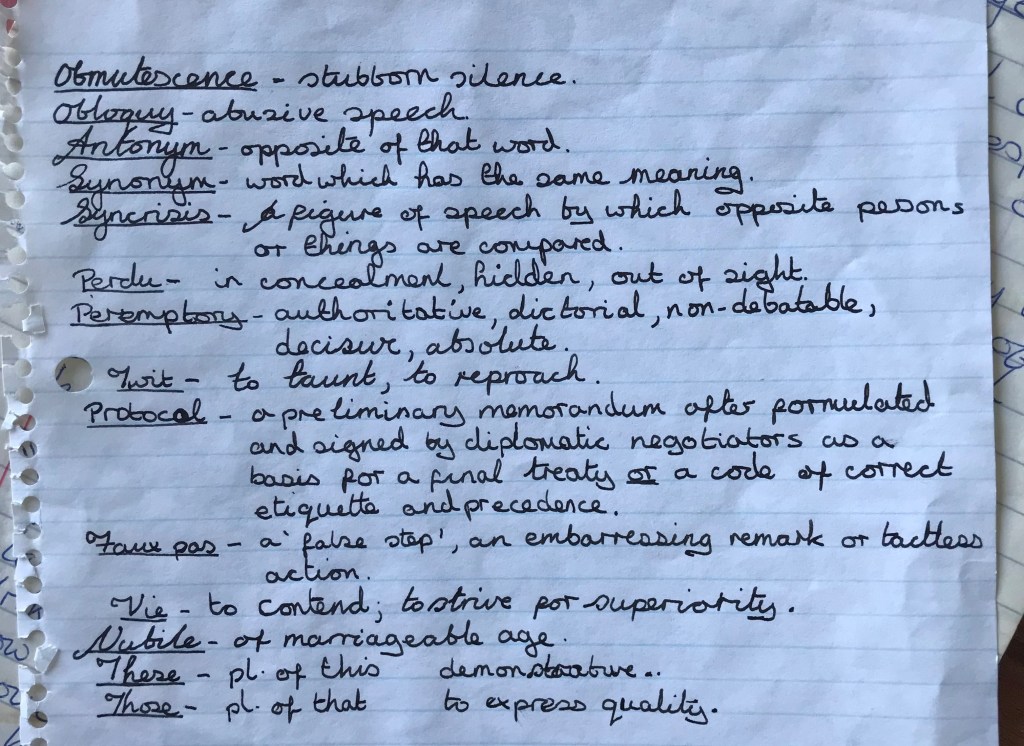 Obmutescence - stubborn silence.
Obloquy - abusive speech.
Antonym - opposite of that word.
Synonym - word which has the same meaning.
Syncrisis - A figure of speech by which opposite pesons
or things are compared.
Perdu - in concealment, hidden, out of sight.
Peremptory - authoritative, dictorial, non-debatable,
decisive, absolute.
Twit - to taunt, to reproach.
Protocol - a preliminary memorandum often formulated
and signed by diplomatic negotiators as a
basis for a final treaty or a code of correct
etiquette and precedence.
Faux pas - a 'false step', an embarressing remark or tactless
action.
Vie - to contend; to strive for superiority.
Nubile - of marriageable age.
These - pl. of this demonstrative..
Those - pl. of that to express quality.